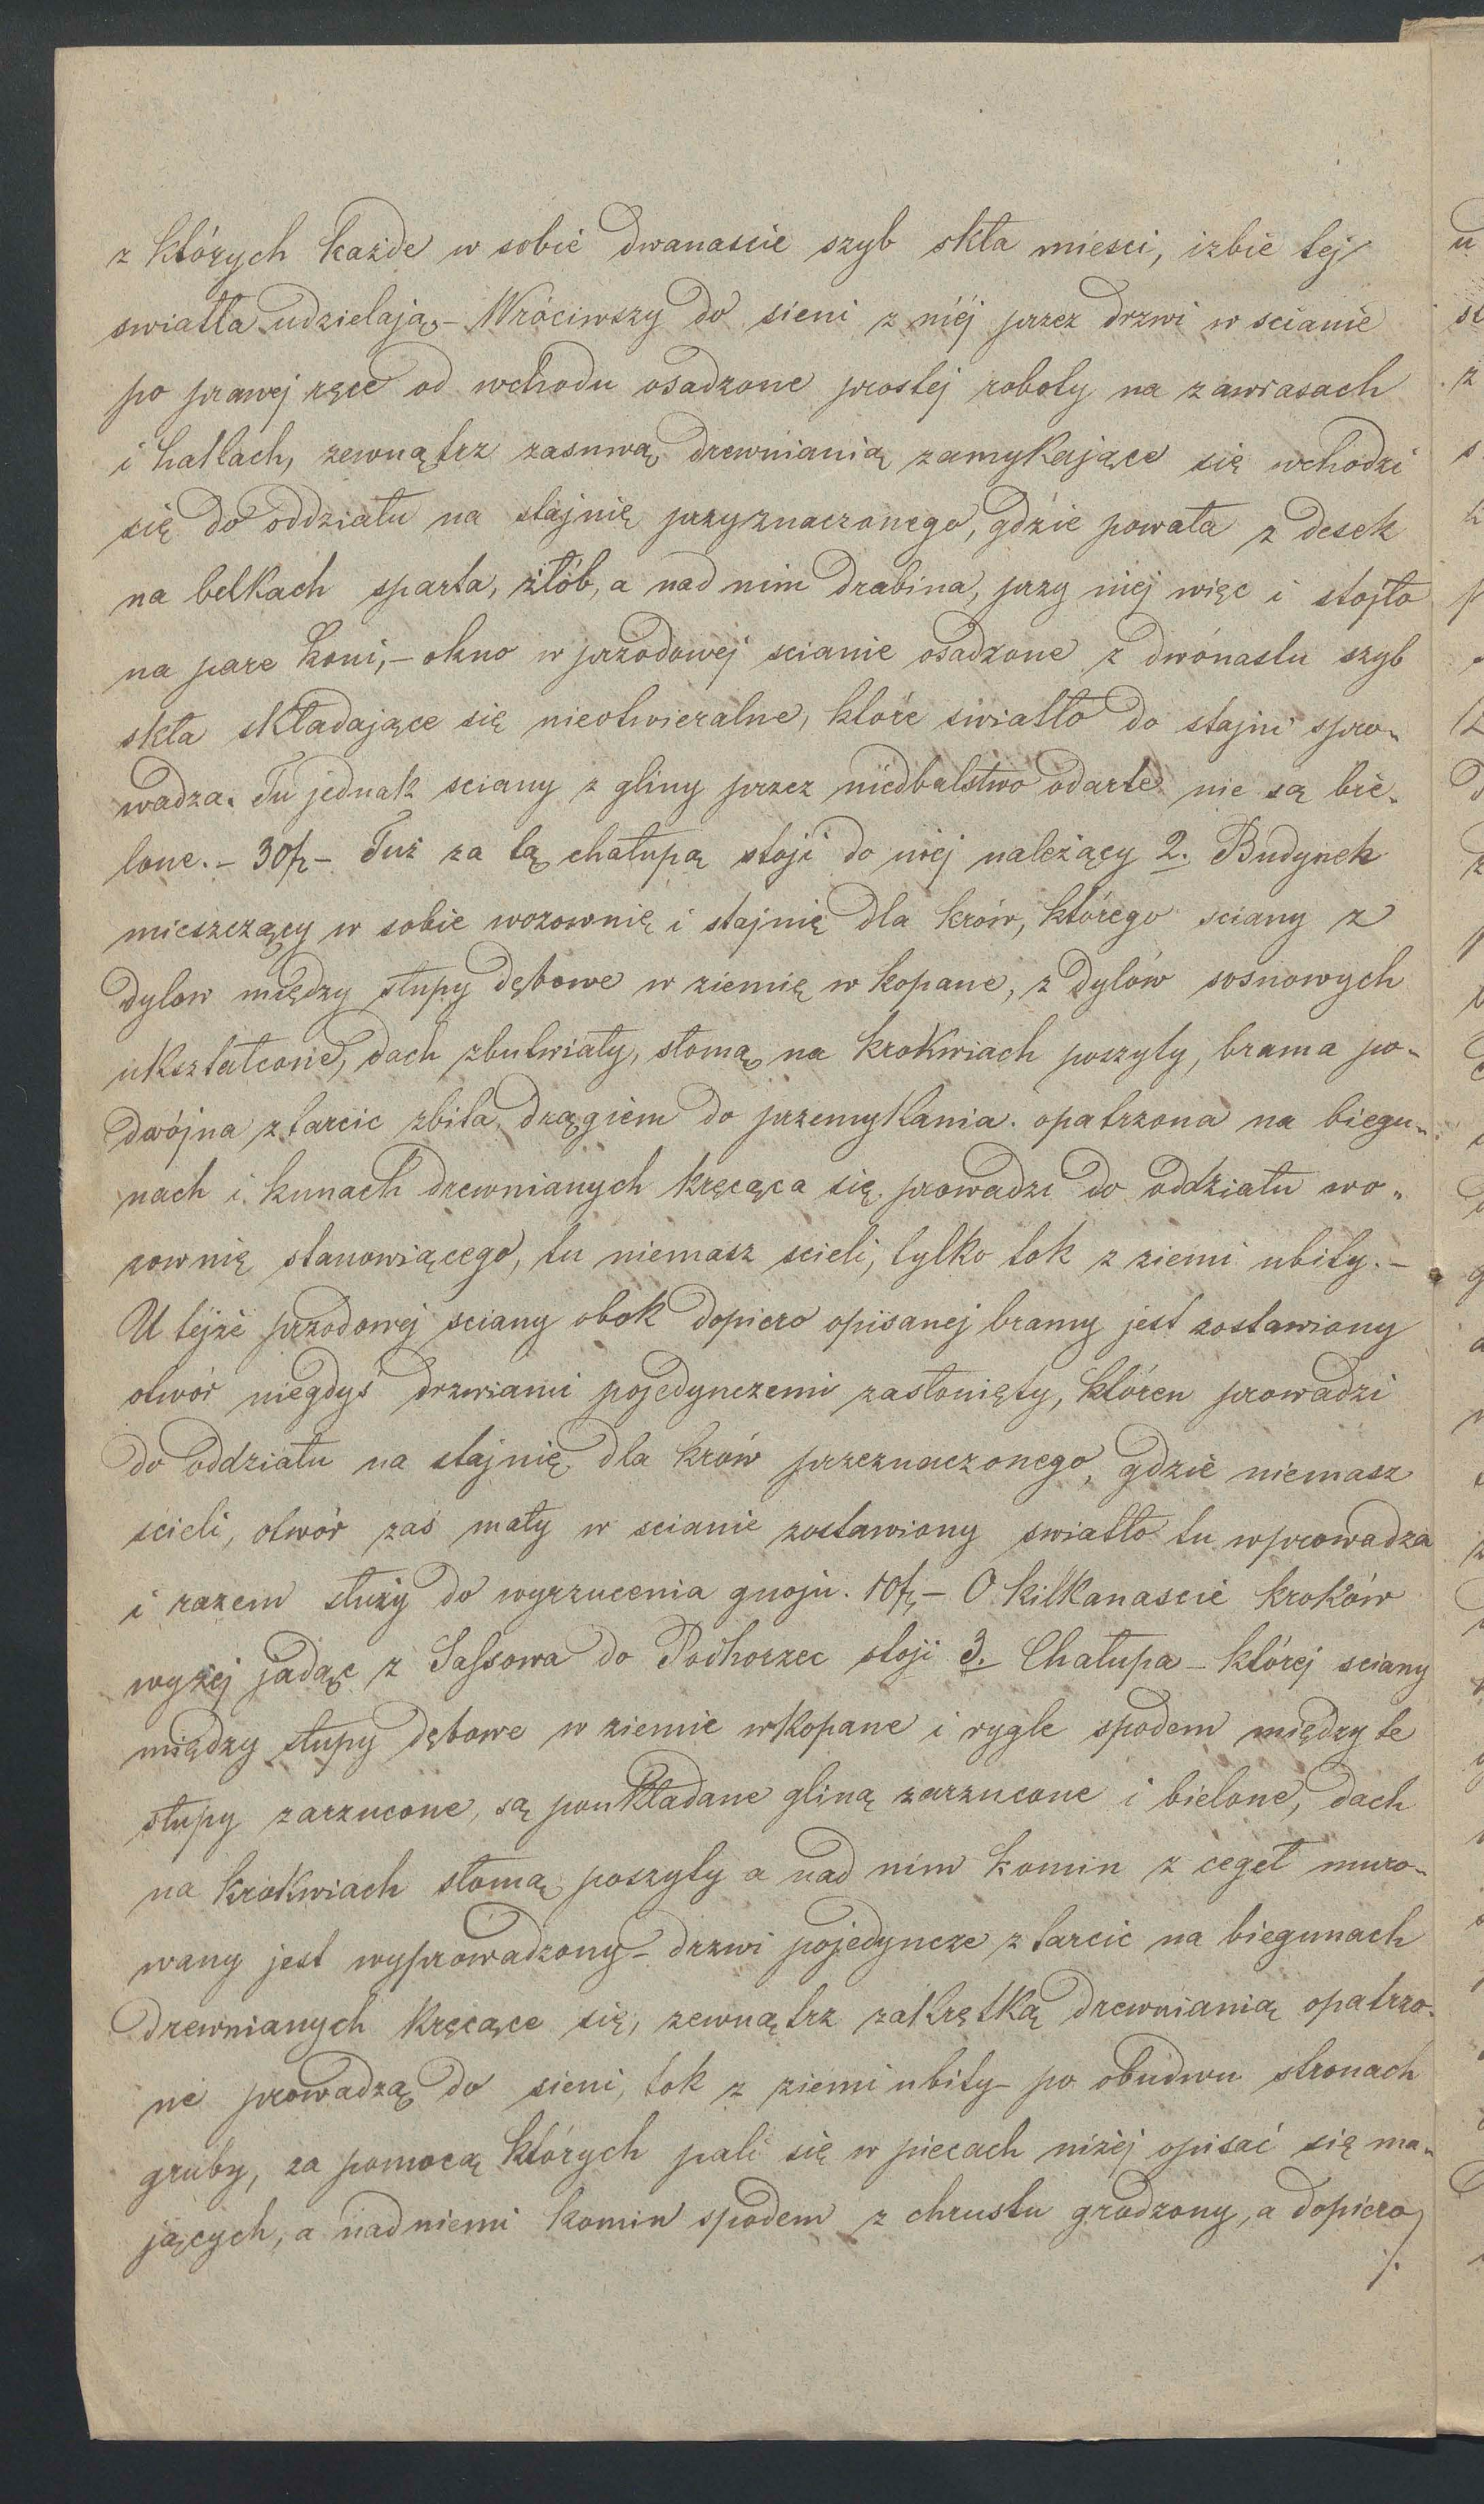 z których każde w sobie dwanascie szyb skła miesci, izbie tej
swiatła udzielają. – Wróciwszy do sieni z niéj przez drzwi w scianie
po prawej ręce od wchodu osadzone prostej roboty na zawiasach
i hatlach, zewnątrz zasuwą drewnianią zamykające się wchodzi
się do oddziału na stajnię przyznaczonego, gdzie powała z desek
na belkach sparta, żłób, a nad nim drabina, przy niej więc i stojło
na pare koni, – okno w przodowej scianie osadzone z dwónastu szyb
skła składające się nieotwieralne, które swiatło do stajni spro-
wadza. Tu jednak sciany z gliny przez niedbalstwo odarte nie są bie-
lone. – 30 fr – Tuż za tą chałupą stoji do niej należący 2. Budynek
mieszczący w sobie wozownię i stajnię dla krów, którego sciany z
dylow między słupy dębowe w ziemię w kopane, z dylów sosnowych
ukształcone, dach zbutwiały, słomą na krokwiach poszyty, brama po-
dwójna z tarcic zbita, drągiem do przemykania opatrzona na biegu-
nach i kunach drewnianych kręcąca się prowadzi do oddziału wo-
zownię stanowiącego, tu niemasz scieli, tylko tok z ziemi ubity. –
U tejże przodowej sciany obok dopiero opisanej bramy jest zostawiony
otwór niegdyś drzwiami pojedynczemi zasłonięty, któren prowadzi
do oddziału na stajnię dla krów przeznaczonego, gdzie niemasz
scieli, otwór zaś mały w scianie zostawiony swiatło tu wprowadza
i razem służy do wyrzucenia gnoju. 10 fr, – O kilkanascie kroków
wyżej jadąc z Sassowa do Podhorzec stoji 3. Chałupa – której sciany
między słupy dębowe w ziemie wkopane i rygle spodem między te
słupy zarzucone, są poukładane gliną zarzucone i bielone, dach
na krokwiach słomą poszyty a nad nim komin z cegeł muro-
wany jest wyprowadzony – drzwi pojedyncze z tarcic na biegunach
drewnianych kręcące się, zewnątrz zakrętką drewnianią opatrzo-
ne prowadzą do sieni, tok z ziemi ubity – po obudwu stronach
gruby, za pomocą których pali się w piecach niżej opisać się ma-
jących, a nad niemi komin spodem z chrustu grodzony, a dopiero
./.